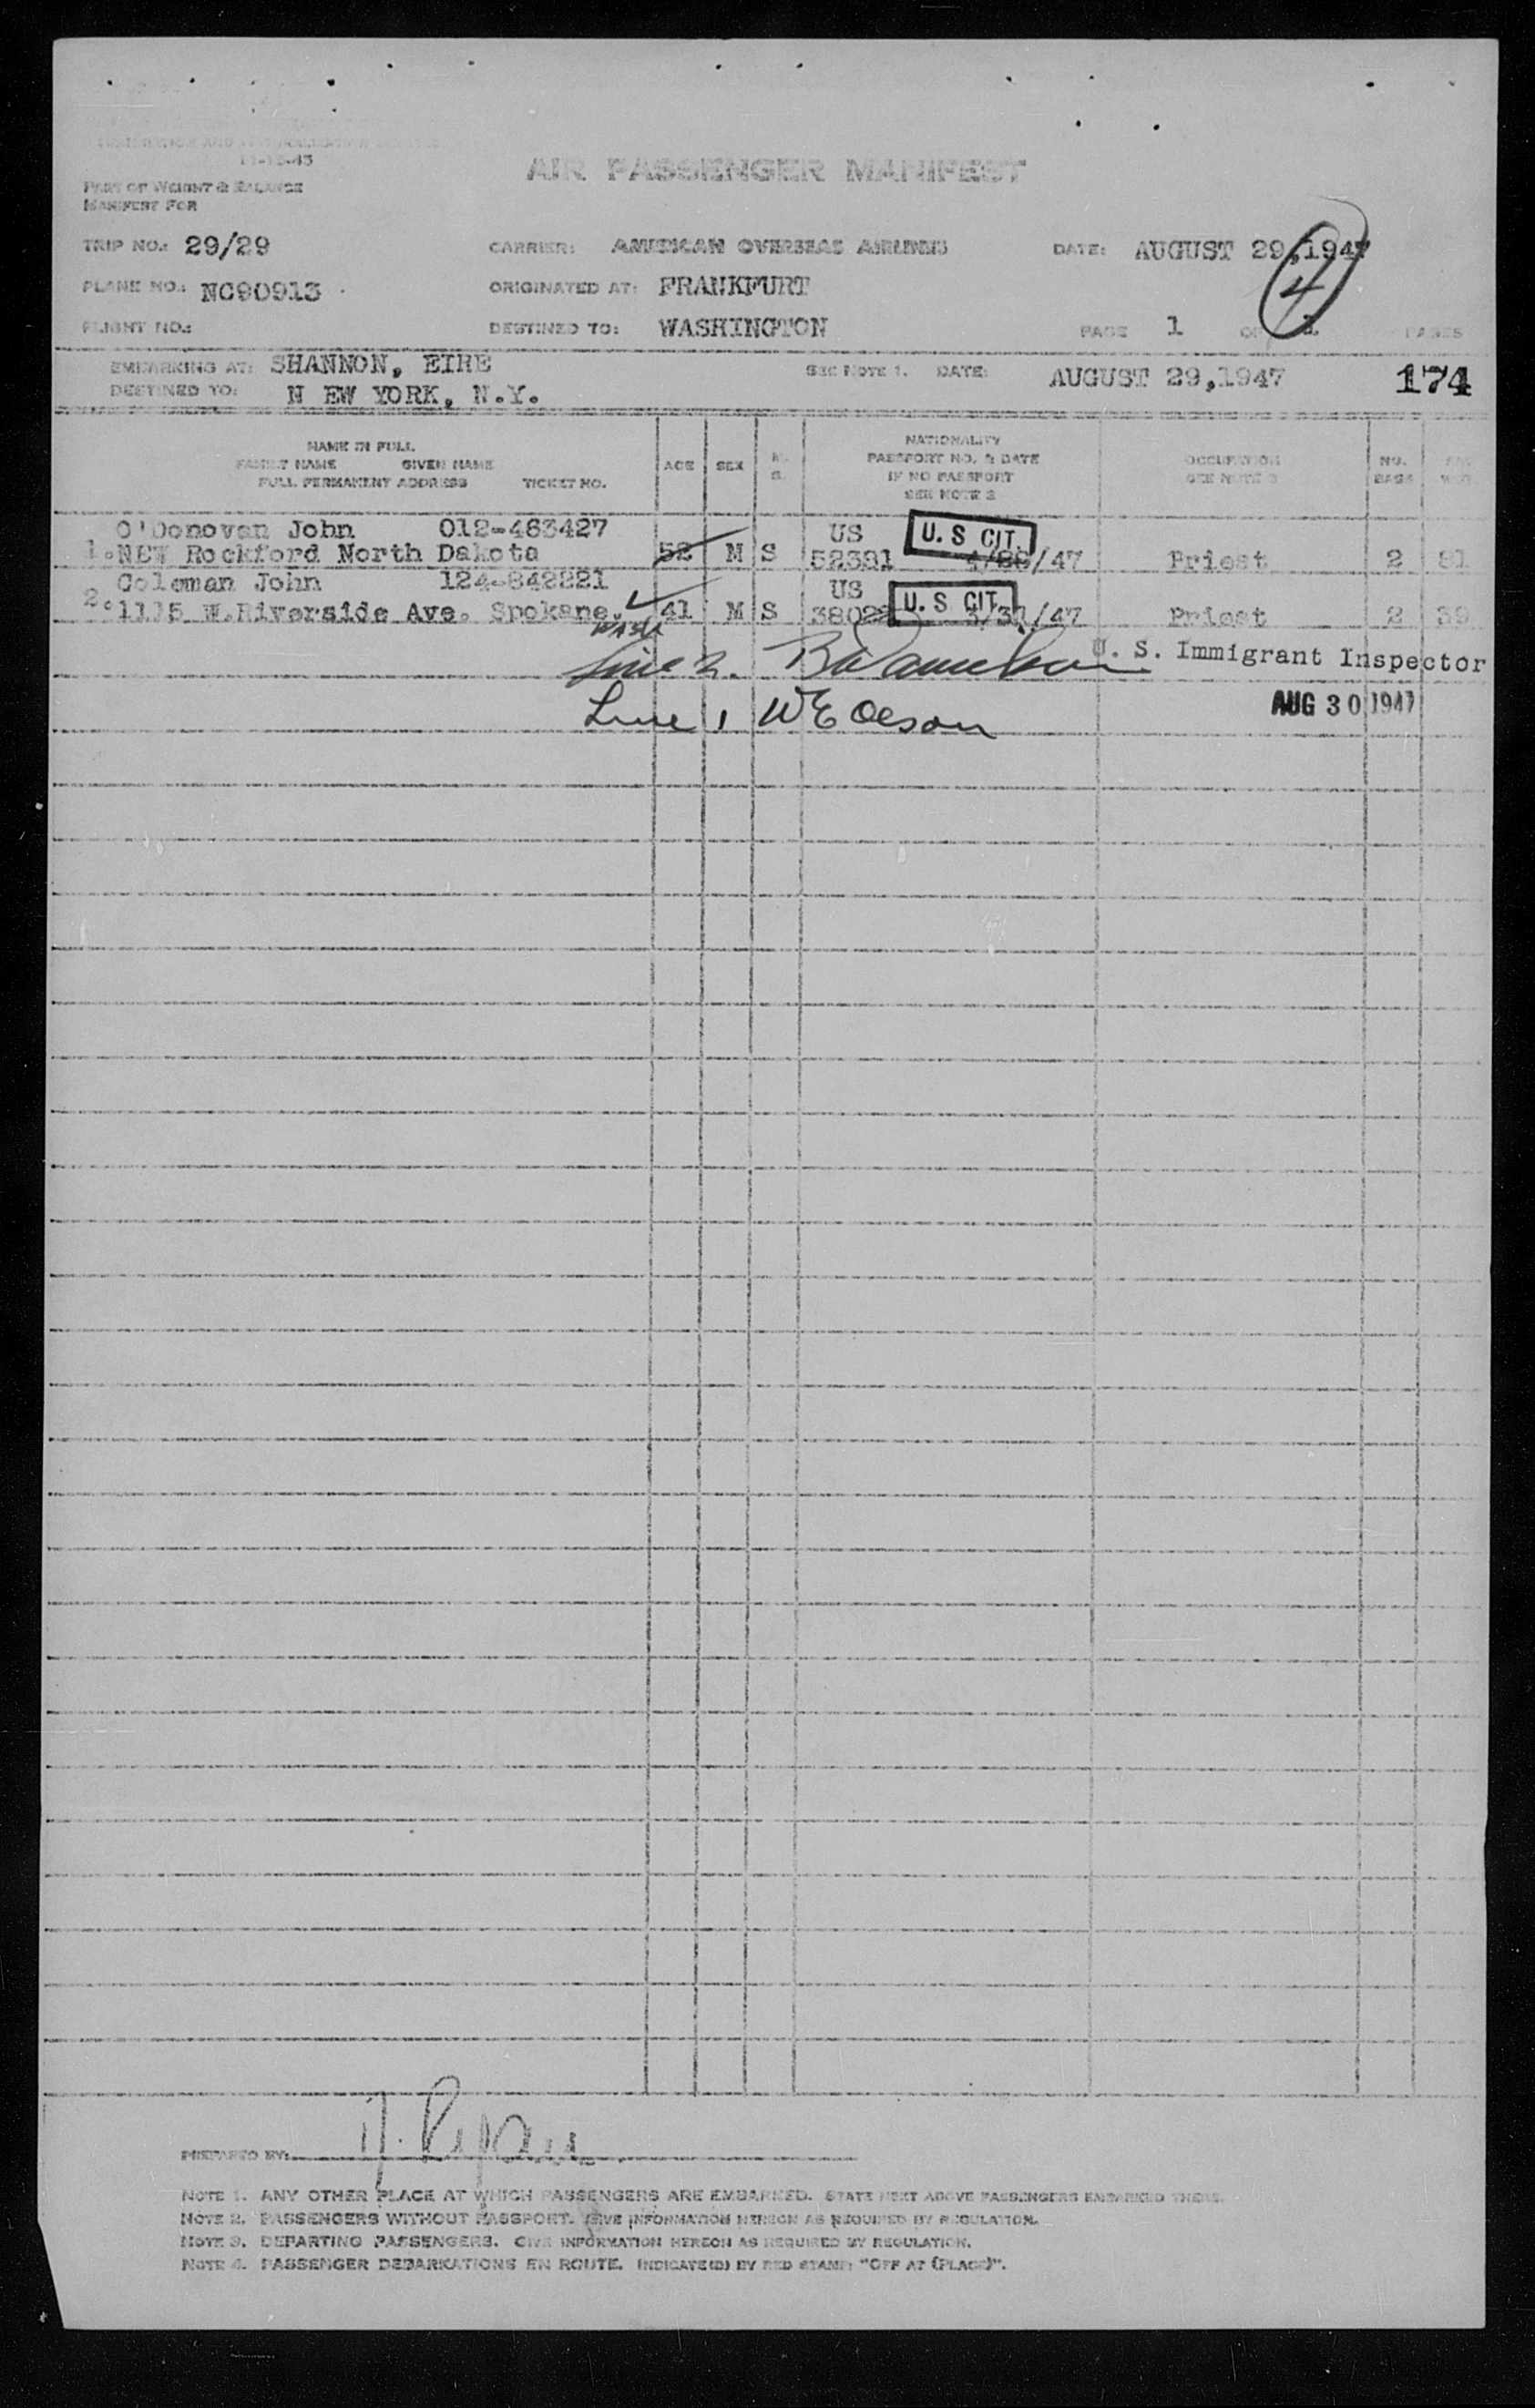 IMMIGRATION AND NATURALIZATION SERVICE
11-15-43
AIR PASSENGER MANIFEST
PART OF WEIGHT & BALANCE
MANIFEST FOR
TRIP NO.: 29/29 CARRIER: AMERICAN OVERSEAS AIRLINES DATE: AUGUST 29,1947
PLANE NO.: NC90913 ORIGINATED AT: FRANKFURT 4
FLIGHT NO.: DESTINED TO: WASHINGTON PAGE 1 OF 1 PAGES
EMBARKING AT: SHANNON, EIRE SEE NOTE 1. DATE: AUGUST 29,1947 174
DESTINED TO: N EW YORK, N.Y.
NAME IN FULL
FAMILY NAME GIVEN NAME
FULL PERMANENT ADDRESS TICKET NO.
AGE SEX M. S.
NATIONALITY
PASSPORT NO. & DATE
IF NO PASSPORT
SEE NOTE 2
OCCUPATION
SEE NOTE 3
NO. BAGS
O'Donovan John 012-483427 US U. S CIT.
1. NEW Rockford North Dakota 52 M S 52391 /47 Priest 2
Coleman John 124-842221 US U. S CIT.
2. 1115 W.Riverside Ave. Spokane. 41 M S /47 Priest 2 39
WASH
Line 2. U. S. Immigrant Inspector
Line 1 WE Olson AUG 30 1947
PREPARED BY: J. Ryan
NOTE 1. ANY OTHER PLACE AT WHICH PASSENGERS ARE EMBARKED. STATE NEXT ABOVE PASSENGERS EMBARKED THERE.
NOTE 2. PASSENGERS WITHOUT PASSPORT. GIVE INFORMATION HEREON AS REQUIRED BY REGULATION.
NOTE 3. DEPARTING PASSENGERS. GIVE INFORMATION HEREON AS REQUIRED BY REGULATION.
NOTE 4. PASSENGER DEBARKATIONS EN ROUTE. INDICATE(D) BY RED STAMP "OFF AT (PLACE)".